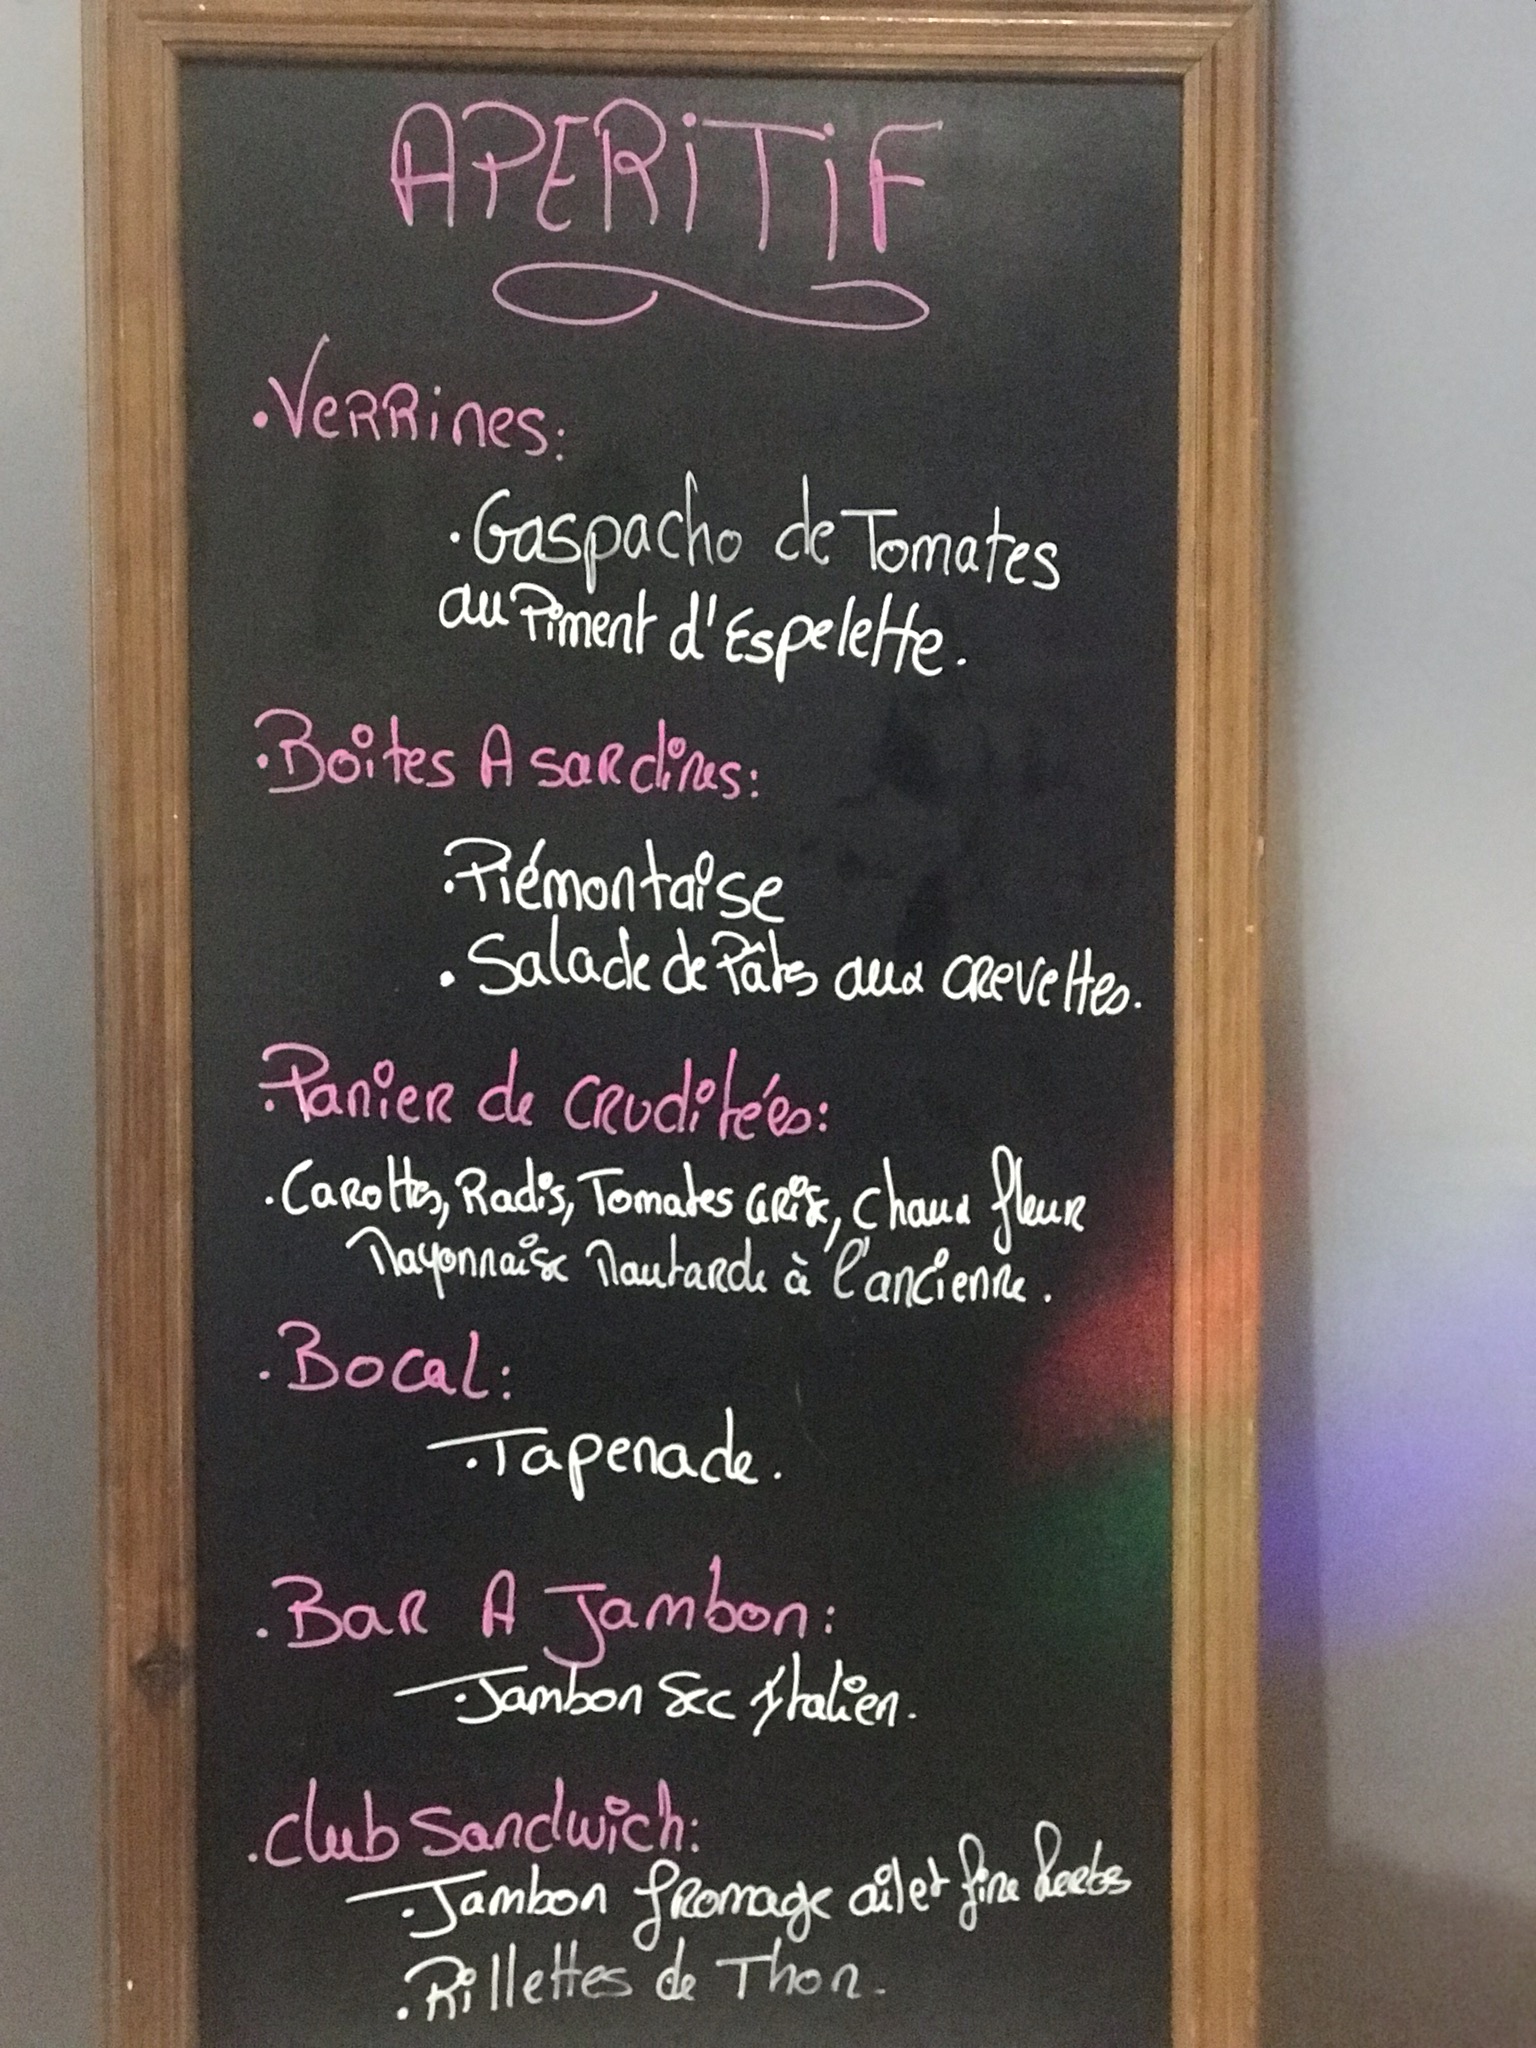 APERITIF
. Verrines:
. Gaspacho de Tomates
au Piment d'Espelette.
. Boites A sardines:
. Piémontaise
. Salade de Pâtes aux crevettes.
. Panier de cruditées:
. Carottes, Radis, Tomates cerise, chaux fleur
Mayonnaise Moutarde à l'ancienne.
. Bocal:
. Tapenade.
. Bar A Jambon:
. Jambon Sec Italien.
. club Sandwich:
. Jambon fromage ail et fine herbes
. Rillettes de Thon.